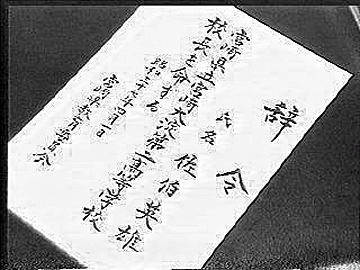 辞令
氏名 佐伯英雄
宮崎県立宮崎大淀第二高等学校
校長を命ずる
昭和三十七年四月一日
宮崎県教育委員会